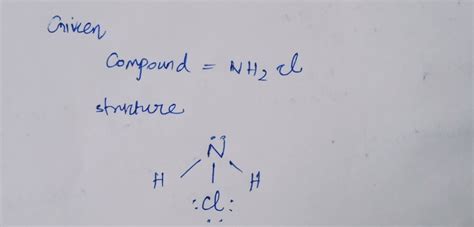 Given
Compound = NH2 Cl
structure
N
H H
:Cl: